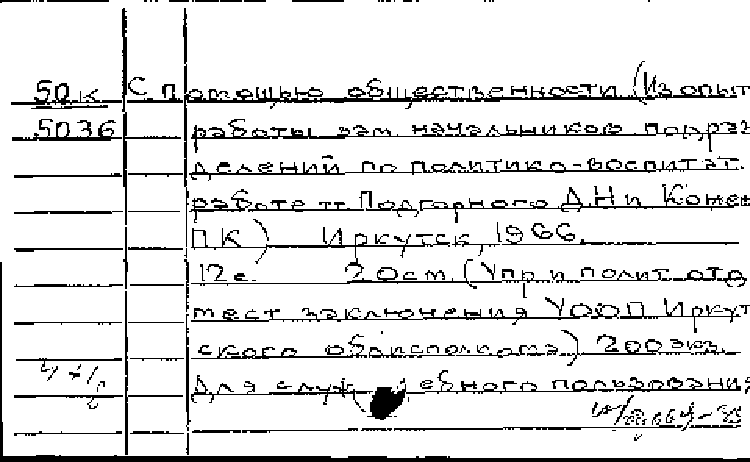 50к С помощью общественности (Из опыт
5036 работы зам. начальников подраз
делений по политико-воспитат.
работе тт. Подгорного Д.Н и Конен
П.К) Иркутск, 1966.
12с. 20см. (Упр и полит отд
мест заключения УООП Иркут
ского облисполкома) 200экз.
Для служ ебного пользования